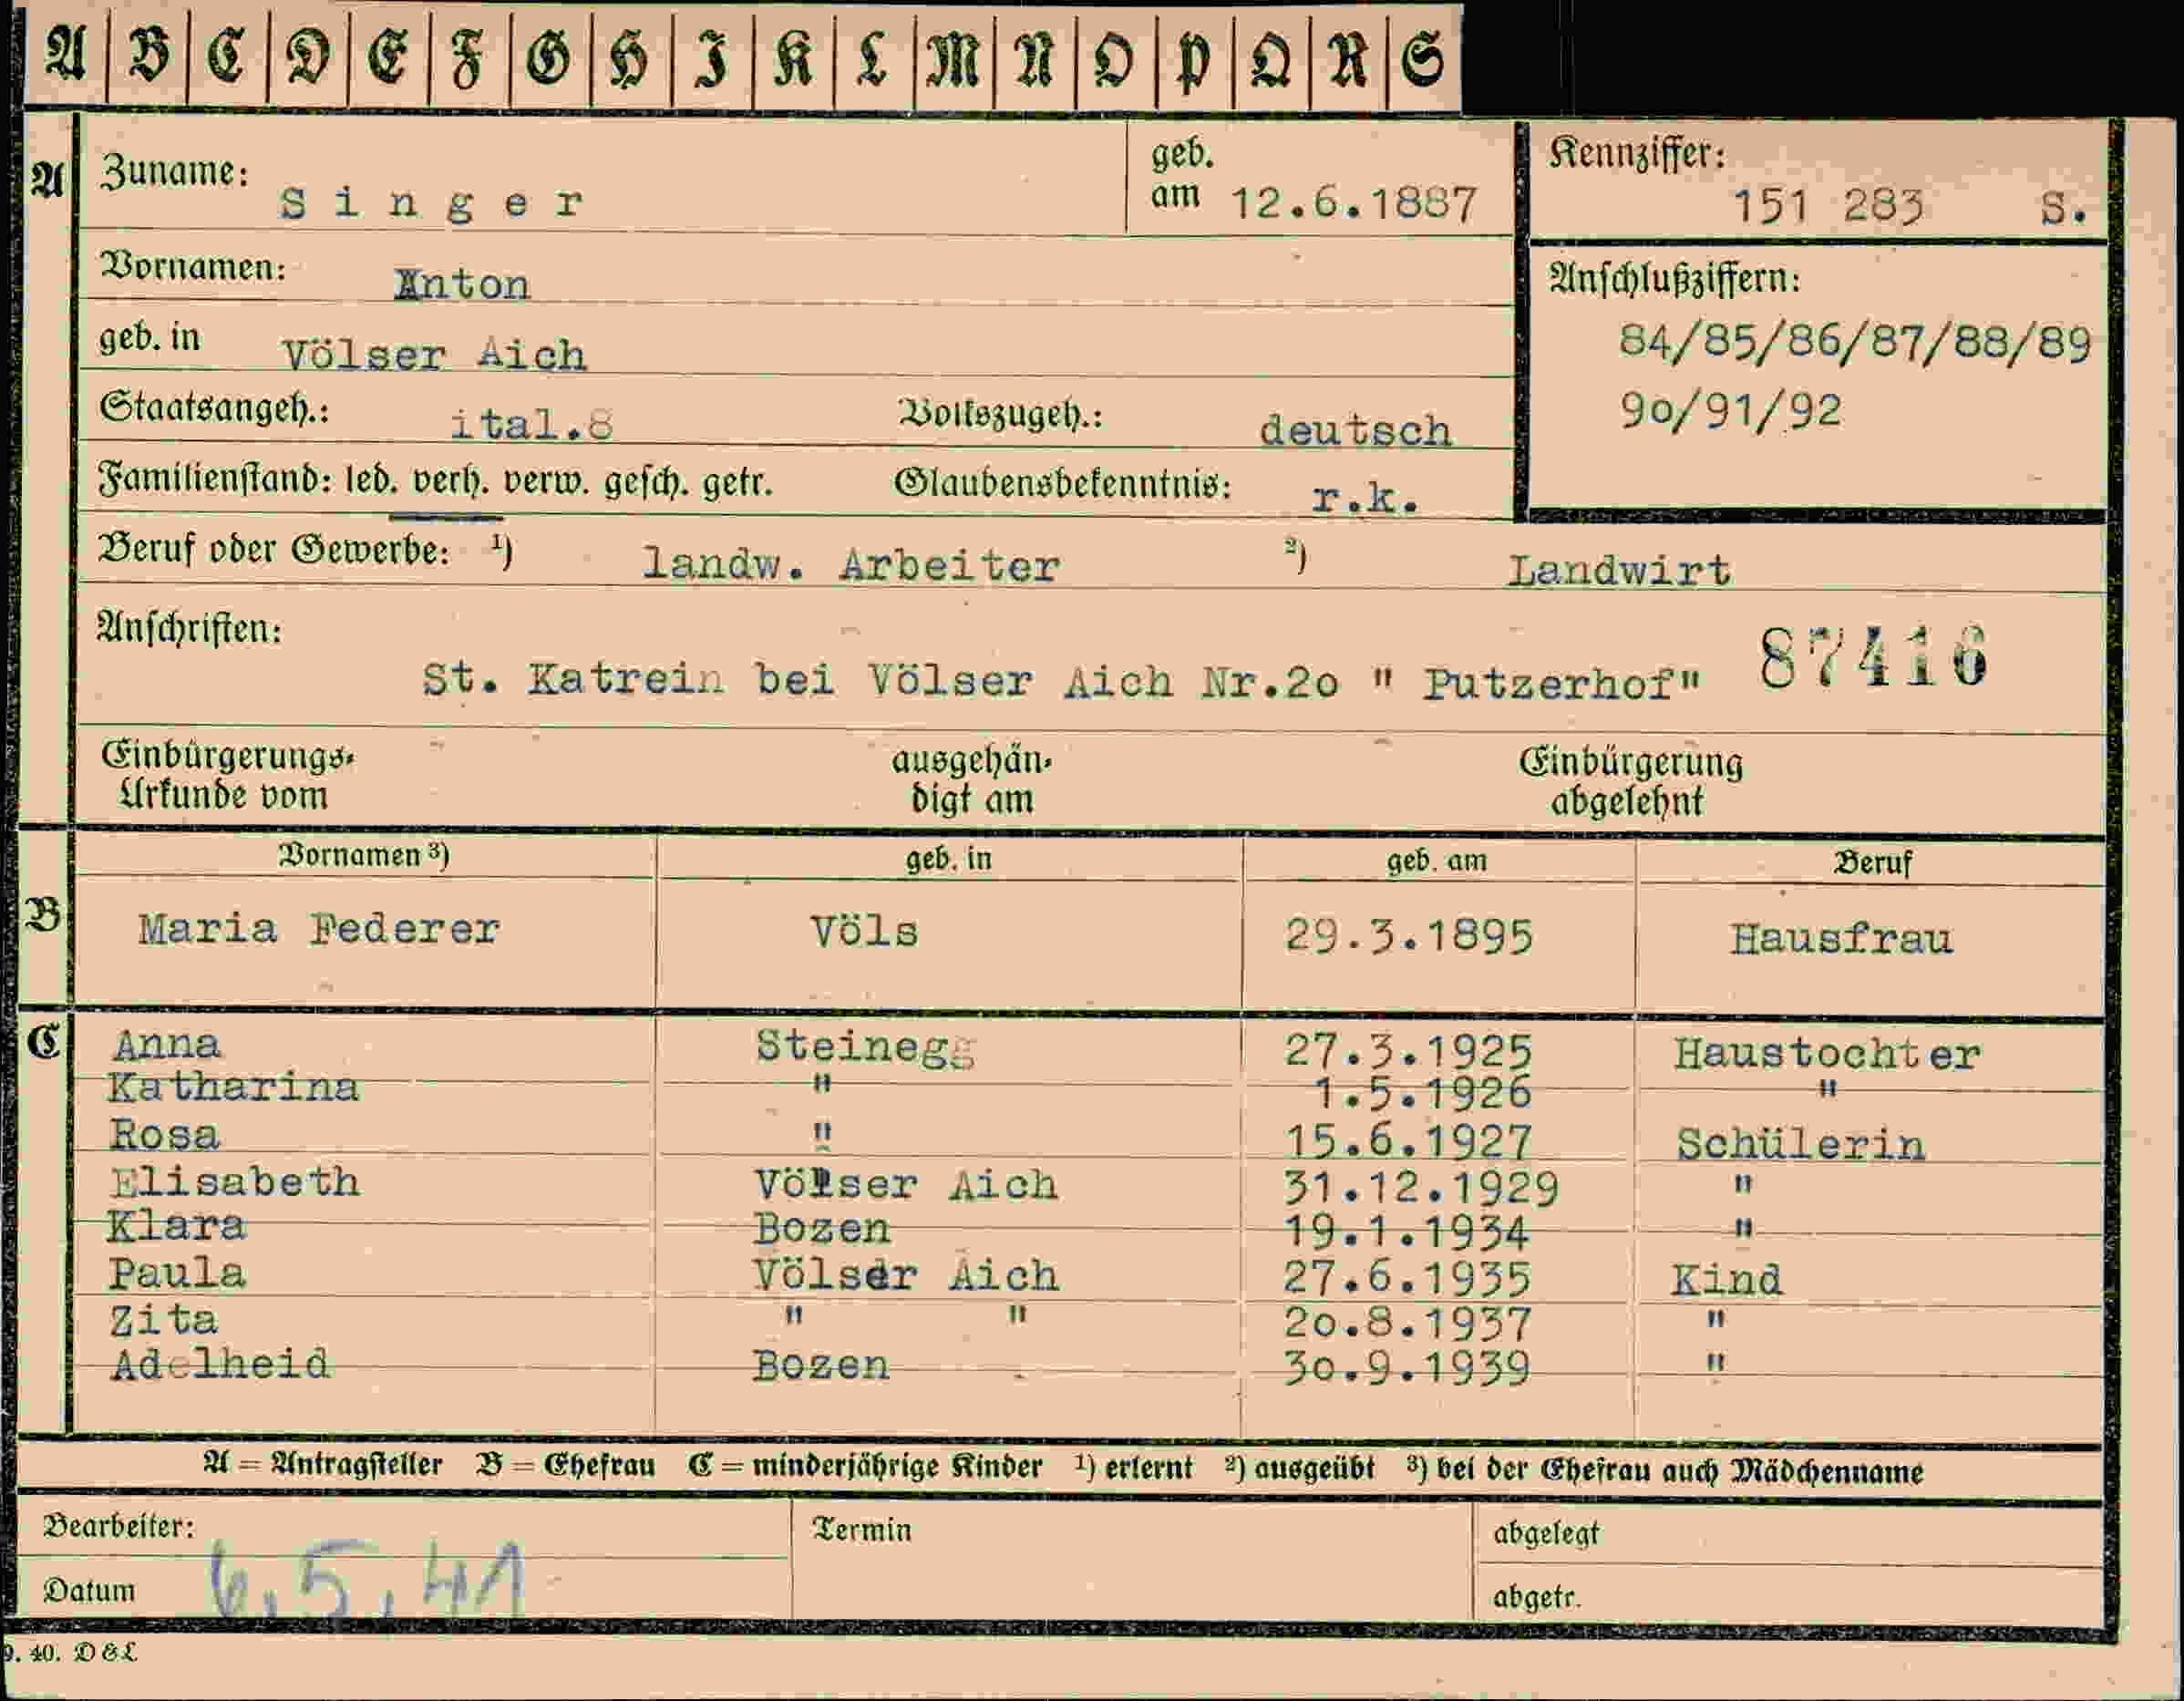 A B C D E F G H I K L M N O P Q R S
A Zuname: Singer geb. am 12.6.1887 Kennziffer: 151 283 S.
Vornamen: Anton Anschlußziffern:
geb. in Völser Aich 84/85/86/87/88/89
Staatsangeh.: ital.8 Volkszugeh.: deutsch 90/91/92
Familienstand: led. verh. verw. gesch. getr. Glaubensbekenntnis: r.k.
Beruf oder Gewerbe: ¹) landw. Arbeiter ²) Landwirt
Anschriften:
St. Katrein bei Völser Aich Nr.20 " Putzerhof" 87416
Einbürgerungs- ausgehän- Einbürgerung
Urkunde vom digt am abgelehnt
Vornamen ³) geb. in geb. am Beruf
B Maria Federer Völs 29.3.1895 Hausfrau
C Anna Steinegg 27.3.1925 Haustochter
Katharina " 1.5.1926 "
Rosa " 15.6.1927 Schülerin
Elisabeth Völser Aich 31.12.1929 "
Klara Bozen 19.1.1934 "
Paula Völser Aich 27.6.1935 Kind
Zita " " 20.8.1937 "
Adelheid Bozen 30.9.1939 "
A = Antragsteller B = Ehefrau C = minderjährige Kinder ¹) erlernt ²) ausgeübt ³) bei der Ehefrau auch Mädchenname
Bearbeiter: Termin abgelegt
Datum 6.5.41 abgetr.
9. 40. D&L